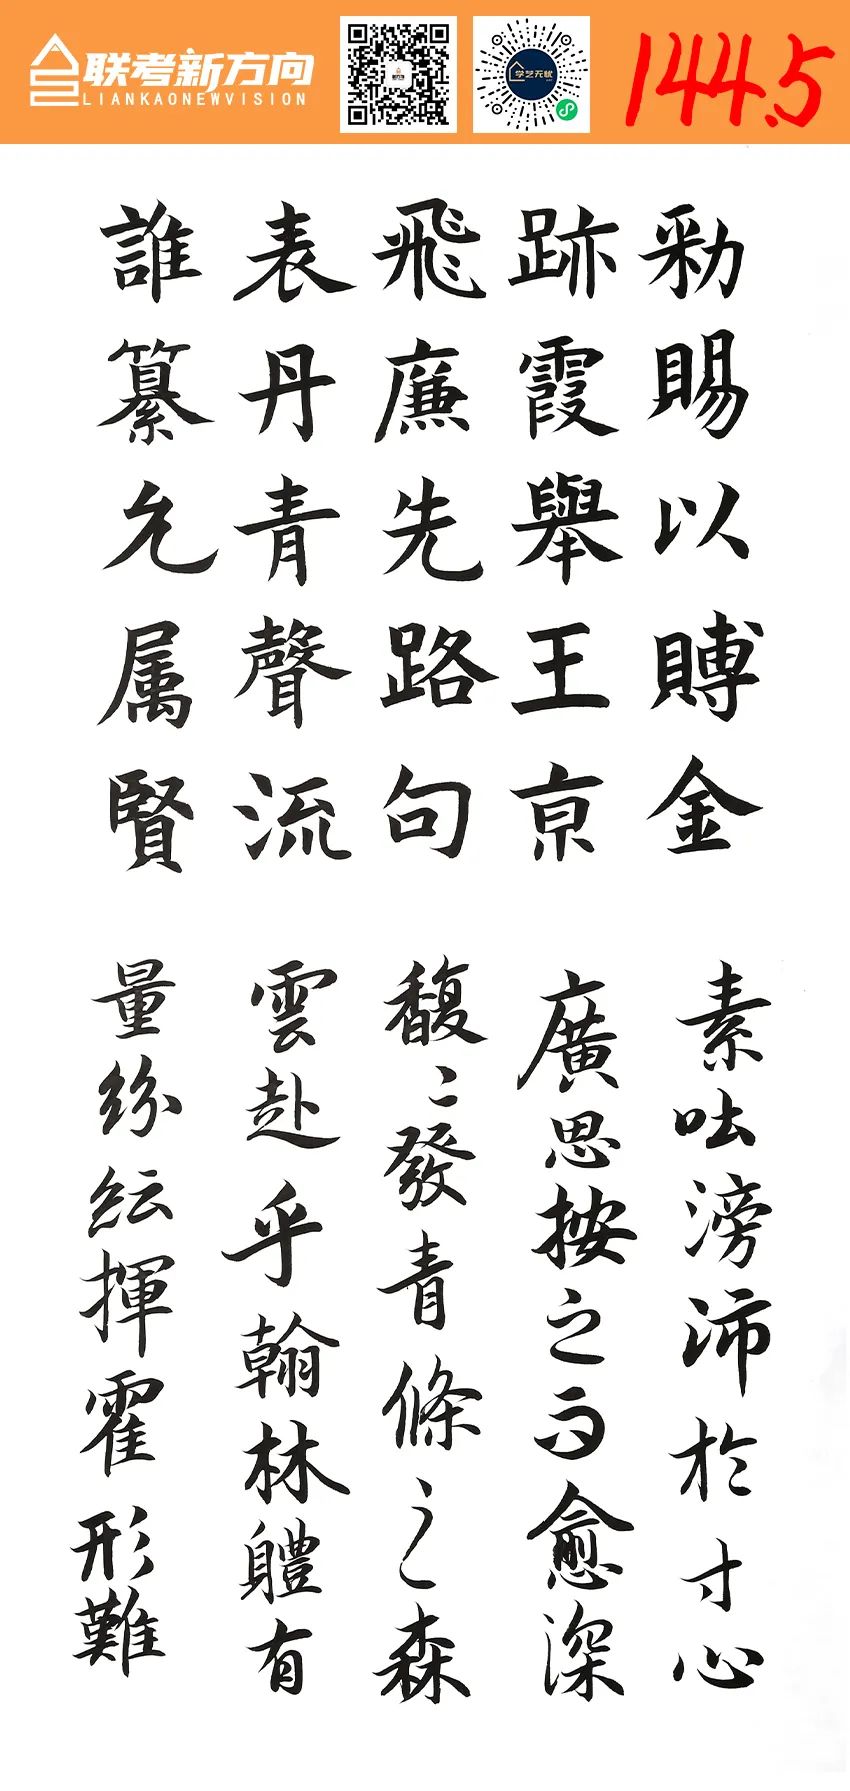 联考新方向
LIANKAONEWVISION
学艺无忧
144.5
賜以賻金
跡霞舉王亰
飛廉先路句
表丹青聲流
誰纂允属賢
素吐滂沛於寸心
廣思按之而愈深
馥〻發青條之森
雲赴乎翰林體有
量紛紜揮霍形難